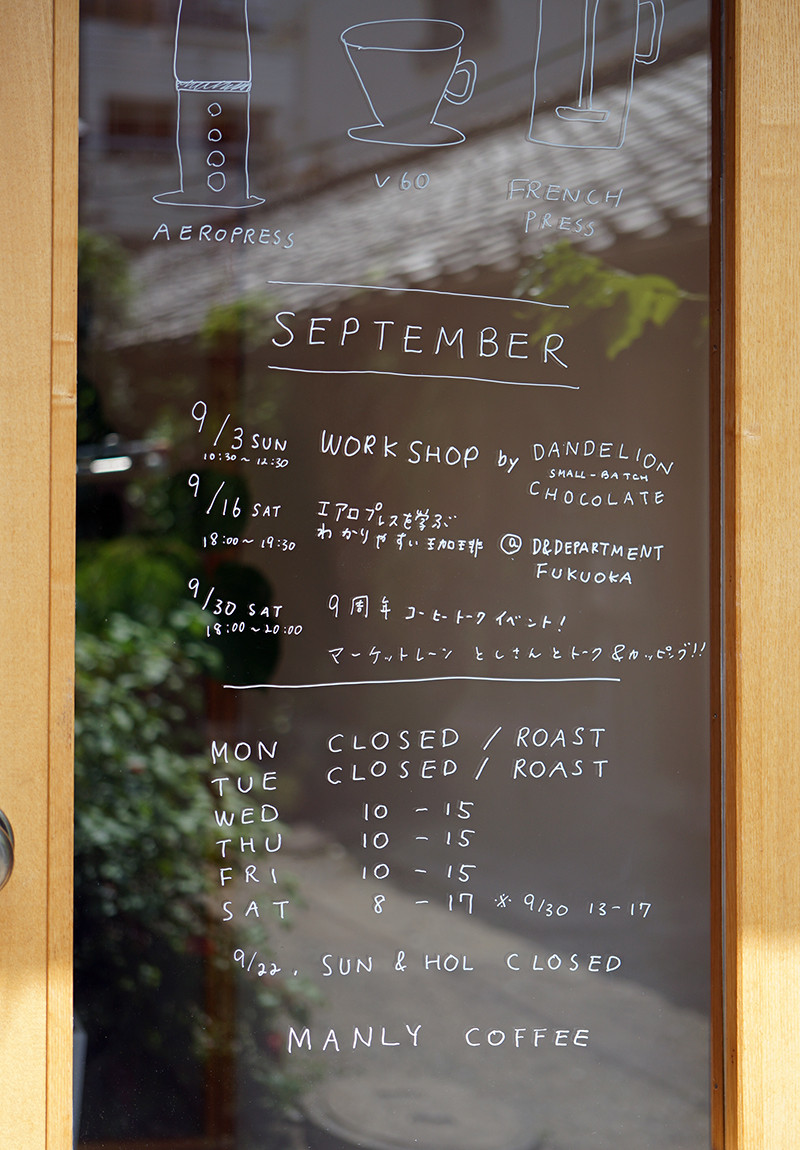 AEROPRESS
V60
FRENCH
PRESS
SEPTEMBER
9/3 SUN
10:30~12:30
WORKSHOP by DANDELION
SMALL-BATCH
CHOCOLATE
9/16 SAT
18:00~19:30
エアロプレスを学ぶ
わかりやすい珈琲 @ D&DEPARTMENT
FUKUOKA
9/30 SAT
18:00~20:00
9周年 コーヒートークイベント!
マーケットレーン としさんとトーク&カッピング!!
MON CLOSED / ROAST
TUE CLOSED / ROAST
WED 10 - 15
THU 10 - 15
FRI 10 - 15
SAT 8 - 17 ※ 9/30 13-17
9/22, SUN & HOL CLOSED
MANLY COFFEE